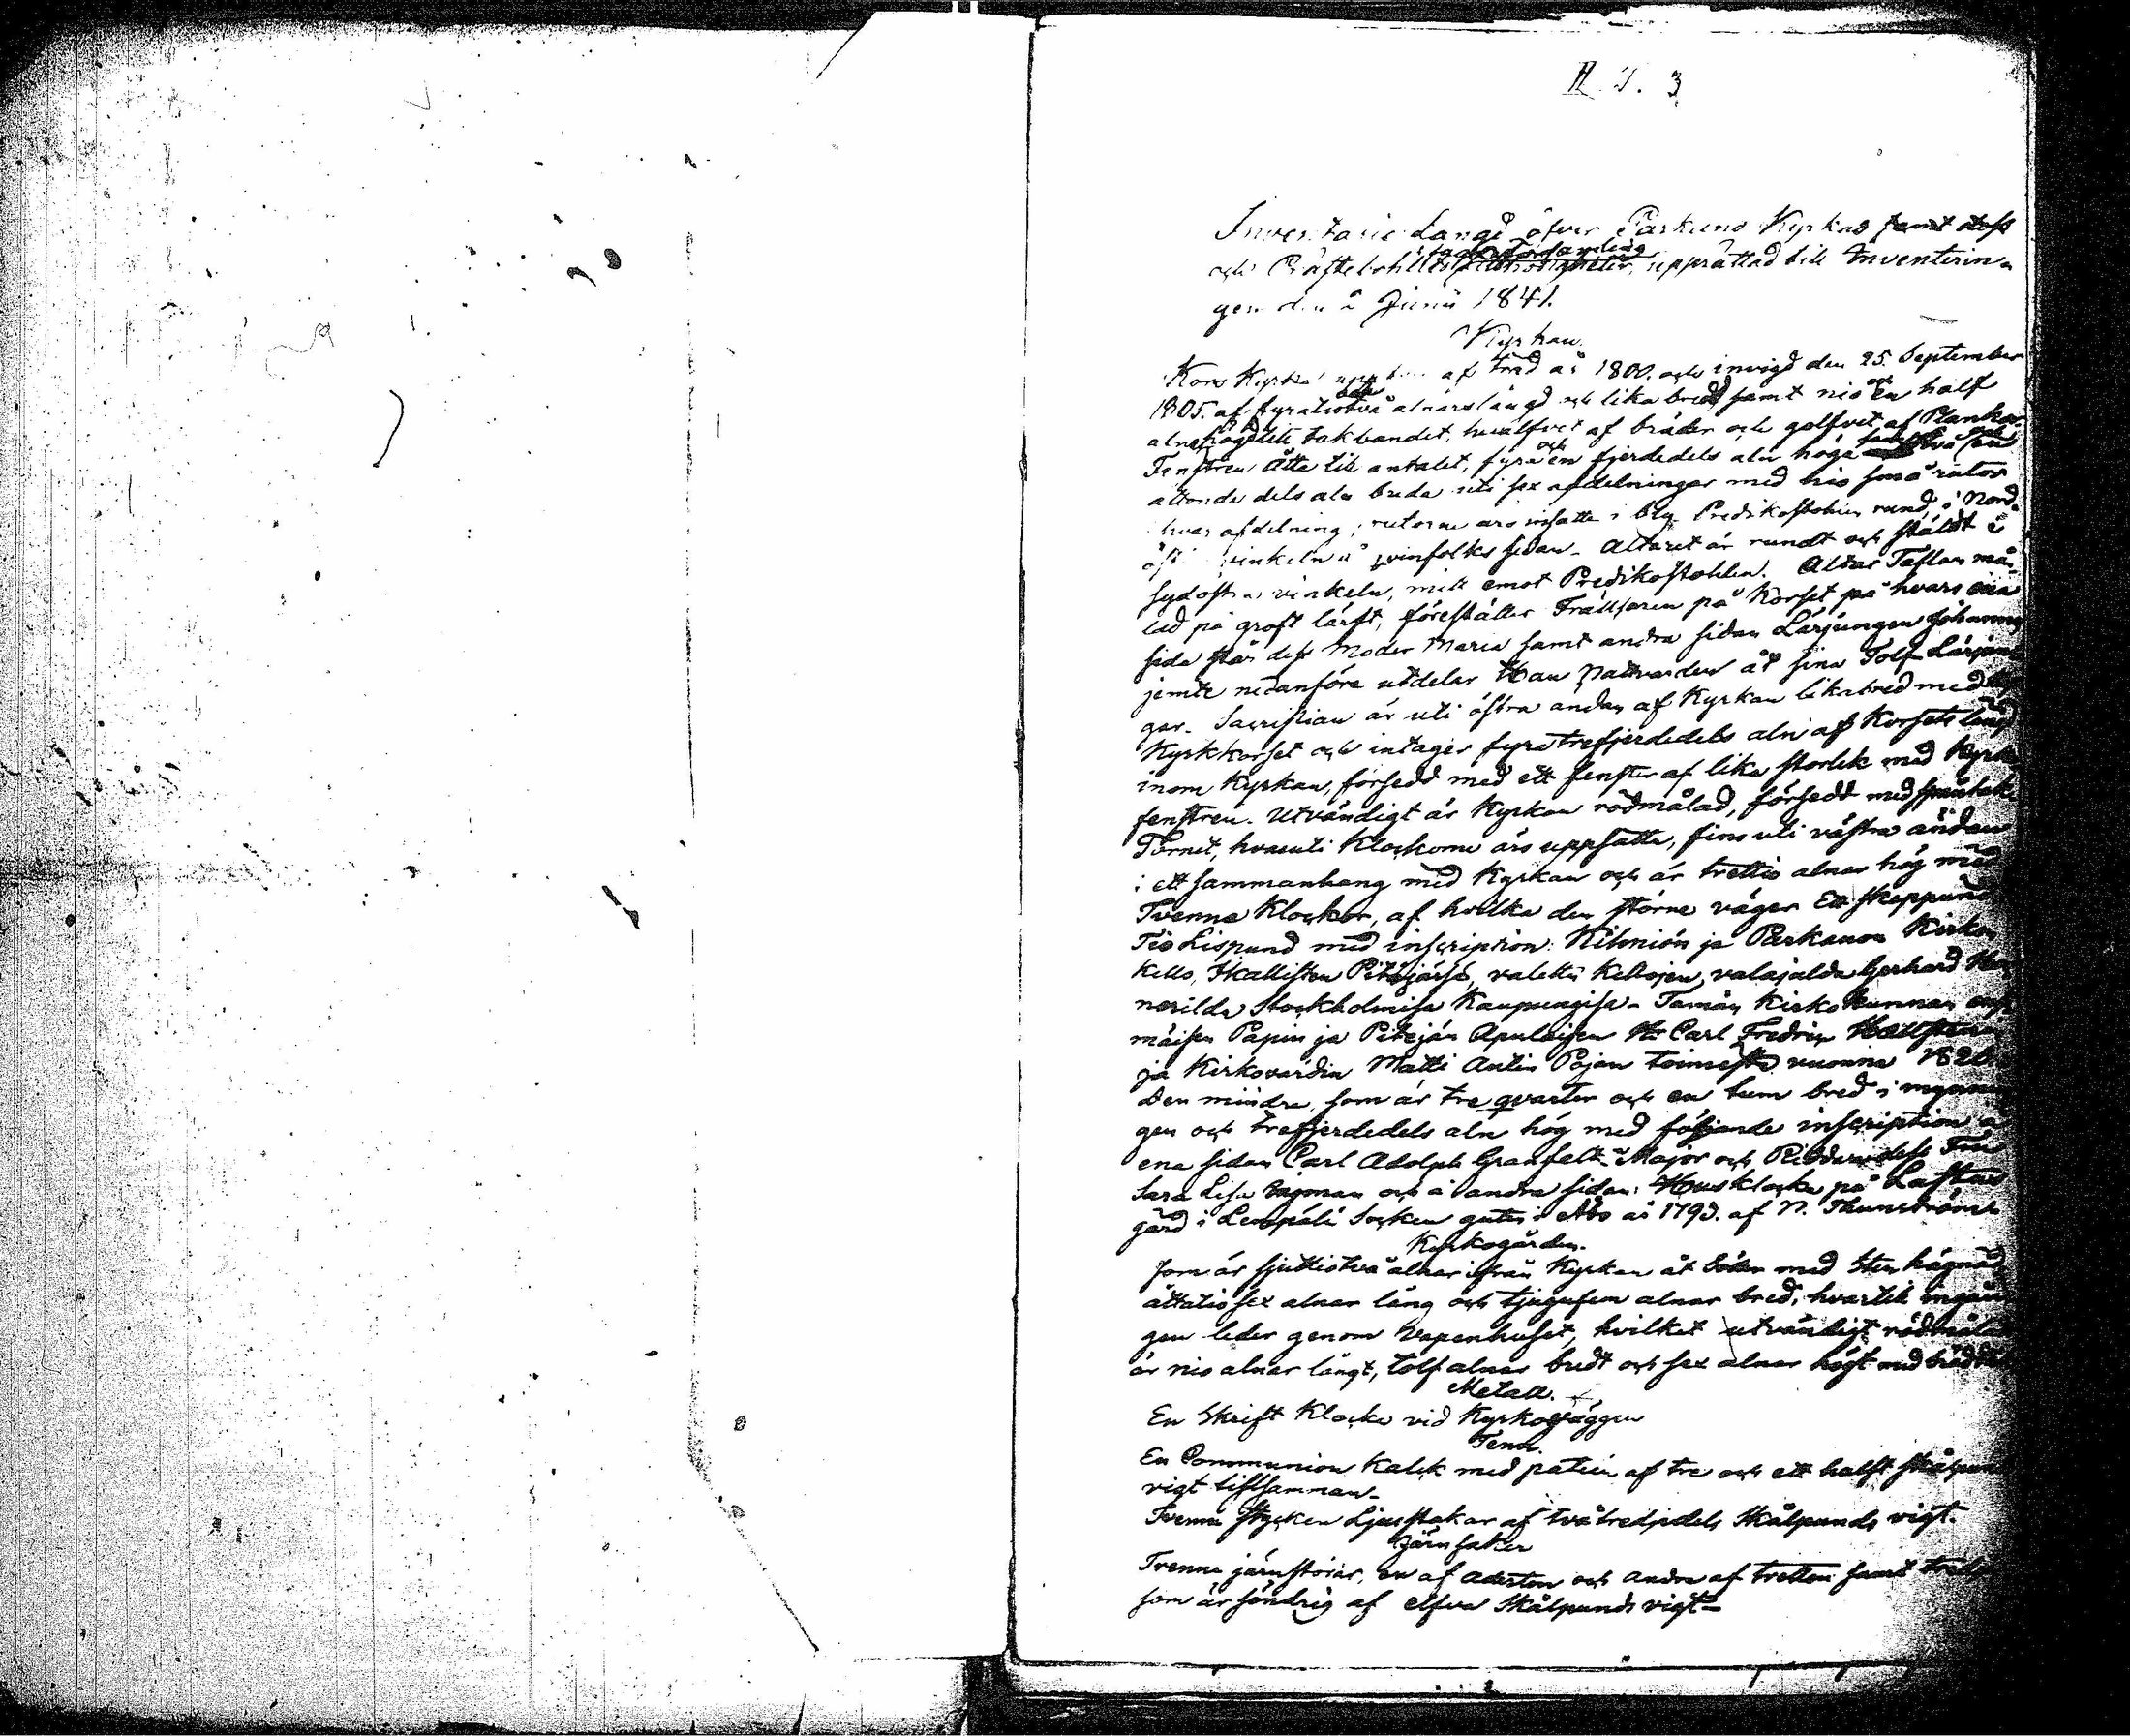 II I. 3
Inventarie Längd öfver Parkano Kyrkas samt dess
lagd församling
och Präststohlls tillhörigheter, upprättad till Inventerin-
gen den 2 Junii 1841.
Kyrkan.
Kors Kyrka af träd år 1800. och invigd den 25. September
1805. af fyratiotvå alnars längd och lika bredd samt nio och en half
alns högd till takbandet, hvalfvet af bräder och golfvet af Plankor.
Fenstren åtta till antalet, fyra och en fjerdedels aln höga samt två och en
attonde dels aln breda uti sex afdelningar med nio små rutor
i hvar afdelning; rutorne äro insatte i bly. Predikostolen rund, i Nord-
östra vinkeln å qvinfolks sidan. Altaret är rundt och stäldt i
sydöstra vinkeln, midt emot Predikostohlen. Altar Taflan må-
lad på groft lärft, föreställer Frälsaren på Korset på hvars ena
sida står dess Moder Maria samt andra sidan Lärjungen Johannes
jemte nedanföre utdelar Han Nattvarden åt sina Tolf Lärjun-
gar. Sacristian är uti östra ändan af Kyrkan lika bred med
Kyrkkorset och intager fyra trefjerdedels aln af Korsets längd
inom Kyrkan, försedd med ett fenster af lika storlek med Kyrko
fenstren. Utvändigt är Kyrkan rödmålad, försedd med spåntak.
Tornet, hvaruti Klockorne äro uppsatte, fins uti västra ändan
i ett sammanhang med Kyrkan och är trettio alnar hög med
Tvenne Klockor, af hvilka den störne väger Ett Skeppund
Tio Lispund med inscription: Kihniön ja Parkanon Kirkon
Kello, Ikallisten Pitäjäsä, valettu Kellojen valajalda Gerhard Hor-
nerilda Stockholmisa Kaupungisa. Tämän Kirkokunnan ensi-
mäisen Papin ja Pitäjän Apulaisen Hr Carl Fredric Hällsten
ja Kirkovärdin Matti Antin Pojan toimesta vuonna 1820
Den mindre, som är tre qvarter och en tum bred i mynnin-
gen och trefjerdedels aln hög med följande inscription å
ena sidan Carl Adolph Granfelt Major och Riddare dess Fru
Sara Lisa Bagman och å andra sidan: Hus klocka på Laston
gård i Lempälä Socken guten i Åbo år 1793. af N. Thunström.
Kyrkogården.
som är sjuttiotvå alnar ifrån Kyrkan åt Söder med Sten hägnad
åttatiosex alnar lång och tjugufem alnar bred, hvartill ingån-
gen leder genom Vapenhuset, hvilket utvändigt rödmålad
är nio alnar långt, tolf alnar bredt och sex alnar högt med
Metall.
En Skrift Klocka vid Kyrkoväggen
Tenn.
En Communion Kalck med patén af tre och ett halft Skålpund
vigt tillsamman.
Tvenne stycken Ljusstakar af två tredjedels Skålpunds vigt.
Järnsaker
Trenne järnstörar, en af aderton och andra af tretton samt tredje
som är söndrig af elfva Skålpunds vigt